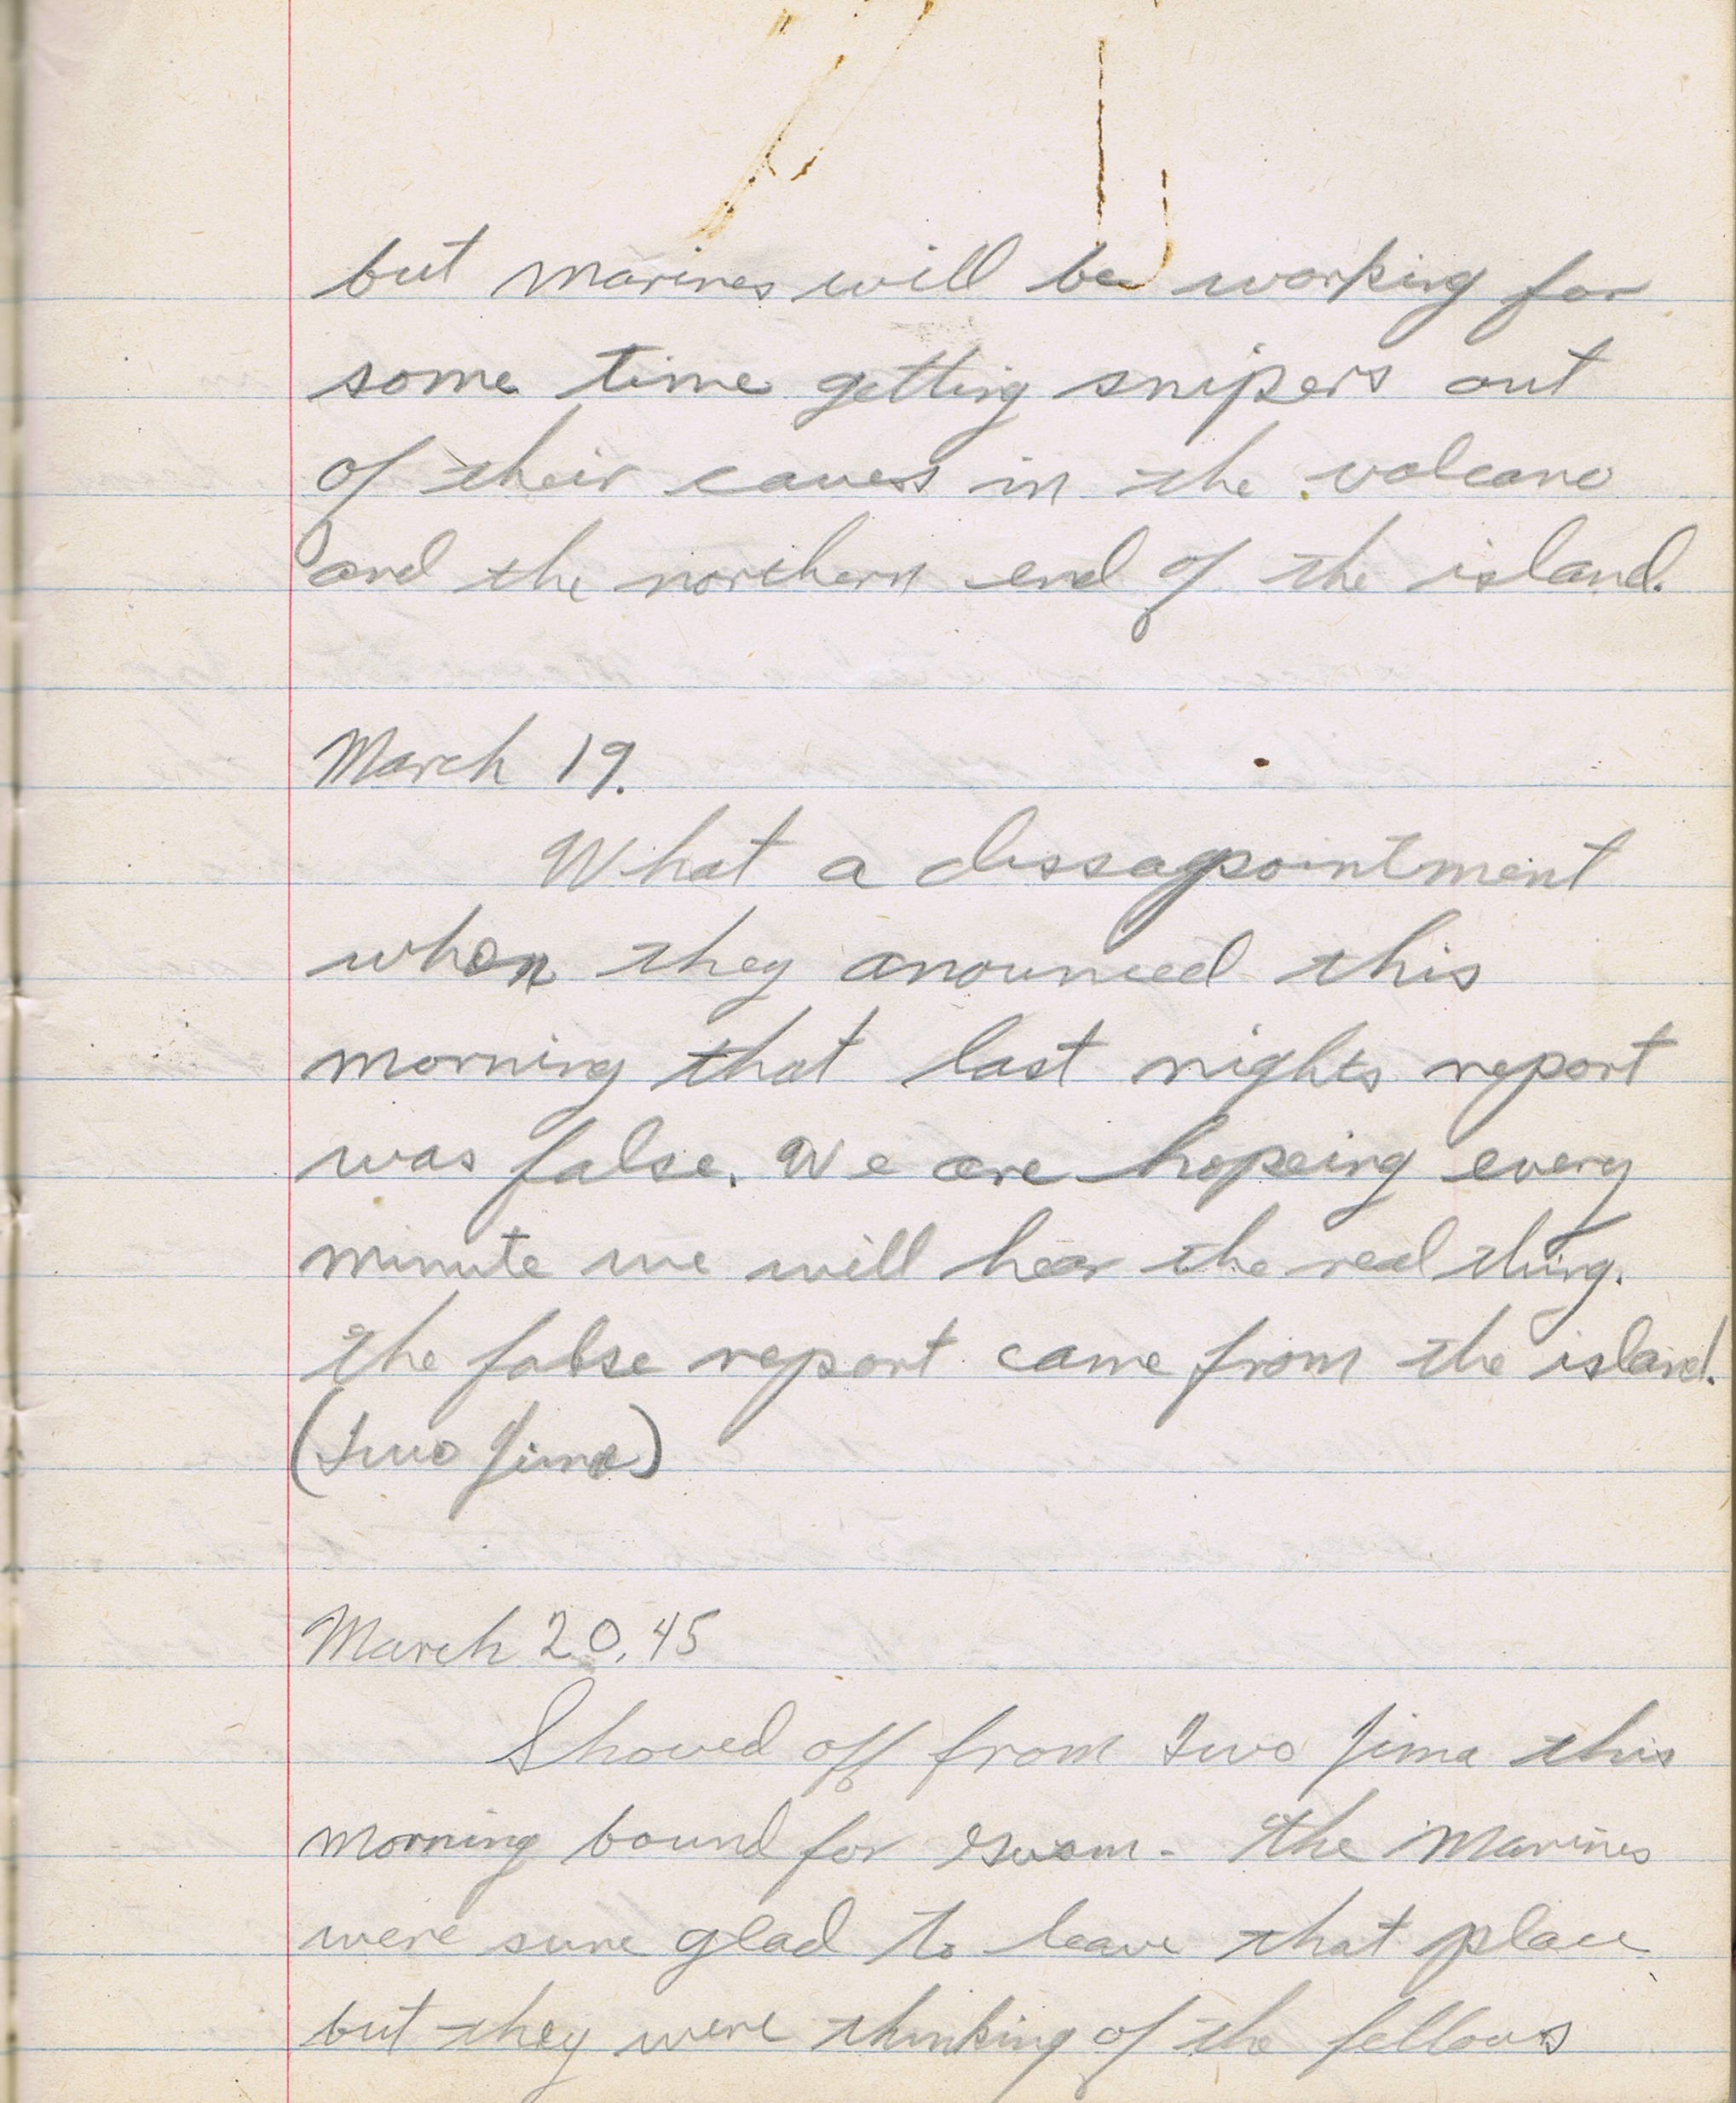 but marines will be working for
some time getting snipers out
of their caves in the volcano
and the northern end of the island.
March 19.
What a dissapointment
when they anounced this
morning that last nights report
was false. We are hopeing every
minute we will hear the real thing.
The false report came from the island.
(Iwo Jima)
March 20, 45
Shoved off from Iwo Jima this
morning bound for Guam. The Marines
were sure glad to leave that place
but they were thinking of the fellows